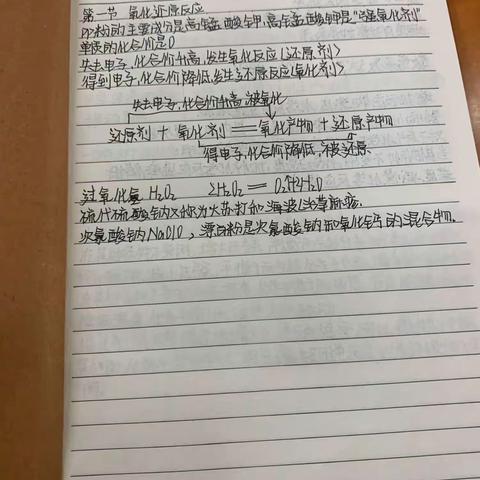 第一节 氧化还原反应
PP粉的主要成份是高锰酸钾,高锰酸钾是"强氧化剂"
单质的化合价是0
失去电子,化合价升高,发生氧化反应(还原剂)
得到电子,化合价降低,发生还原反应(氧化剂)
失去电子,化合价升高,被氧化
还原剂 + 氧化剂 === 氧化产物 + 还原产物
得电子,化合价降低,被还原
过氧化氢 H₂O₂ 2H₂O₂ == O₂↑+2H₂O
硫代硫酸钠又称为大苏打和海波
次氯酸钠NaClO,漂白粉是次氯酸钠和氧化钙的混合物.